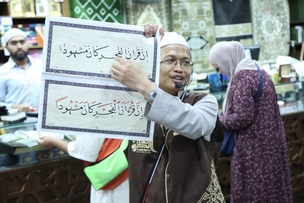 اِنَّ قُرْآنَ الْفَجْرِ كَانَ مَشْهُودًا
اِنَّ قُرْآنَ الْفَجْرِ كَانَ مَشْهُودًا